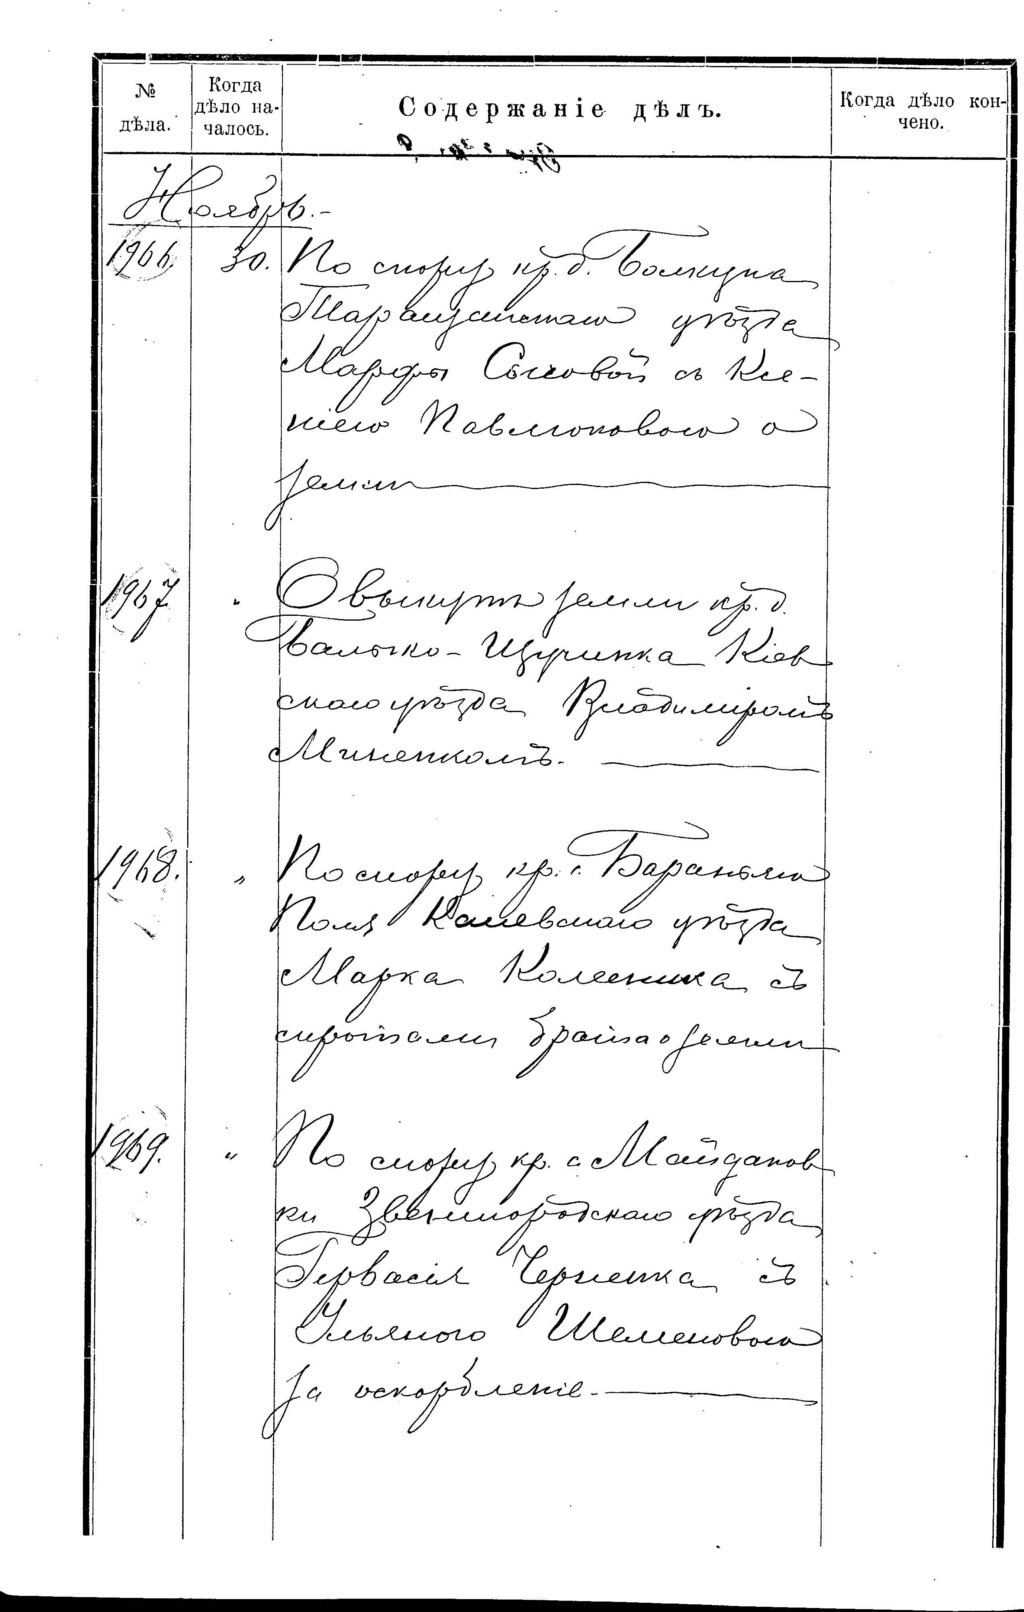 № дѣла.
Когда дѣло на-чалось.
Содержаніе дѣлъ.
Когда дѣло кон-чено.
Ноябрь.-
1966. 30. По спору кр. д. Болкуна
Таращанскаго уѣзда
Марфы Сысовой съ Ксе-
ніею Павлюковою о
землѣ
1967. " О выкупѣ земли кр. д.
Балыко-Щучинка Кіев
скаго уѣзда Владимиромъ
Миненкомъ.
1968. " По спору кр. с. Бараньяго
Поля Каневскаго уѣзда
Марка Колесника съ
сиротами брата о земли
1969. " По спору кр. с. Майданов
ки Звенигородскаго уѣзда
Гервасія Черненка съ
Ульяною Шеменовою
за оскорбленіе.